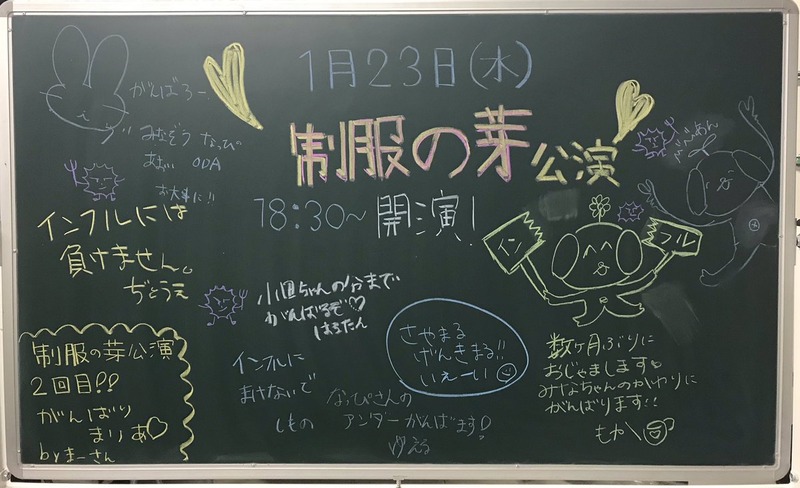 1月23日(水)
制服の芽公演
18:30～開演!
がんばろー!
みなぞう なっぴ
ODA
お大事に!!
インフルには
負けません。
ぢどうえ
小畑ちゃんの分まで
がんばるぞ♡
はるたん
制服の芽公演
2回目!!
がんばり
まりあ♡
by まーさん
インフルに
まけないで
しもの
さやまる
げんきまる!!
いえーい
なっぴさんの
アンダーがんばます!
ゆえる
イン
フル
数ヶ月ぶりに
おじゃまします。
みなちゃんのかわりに
がんばります!!
もか